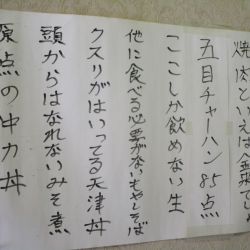 焼肉といえば
五目チャーハン85点
ここしか飲めない生
他に食べる必要がないもやしそば
クスリがはいってる天津丼
頭からはなれないみそ煮
原点の中カ丼